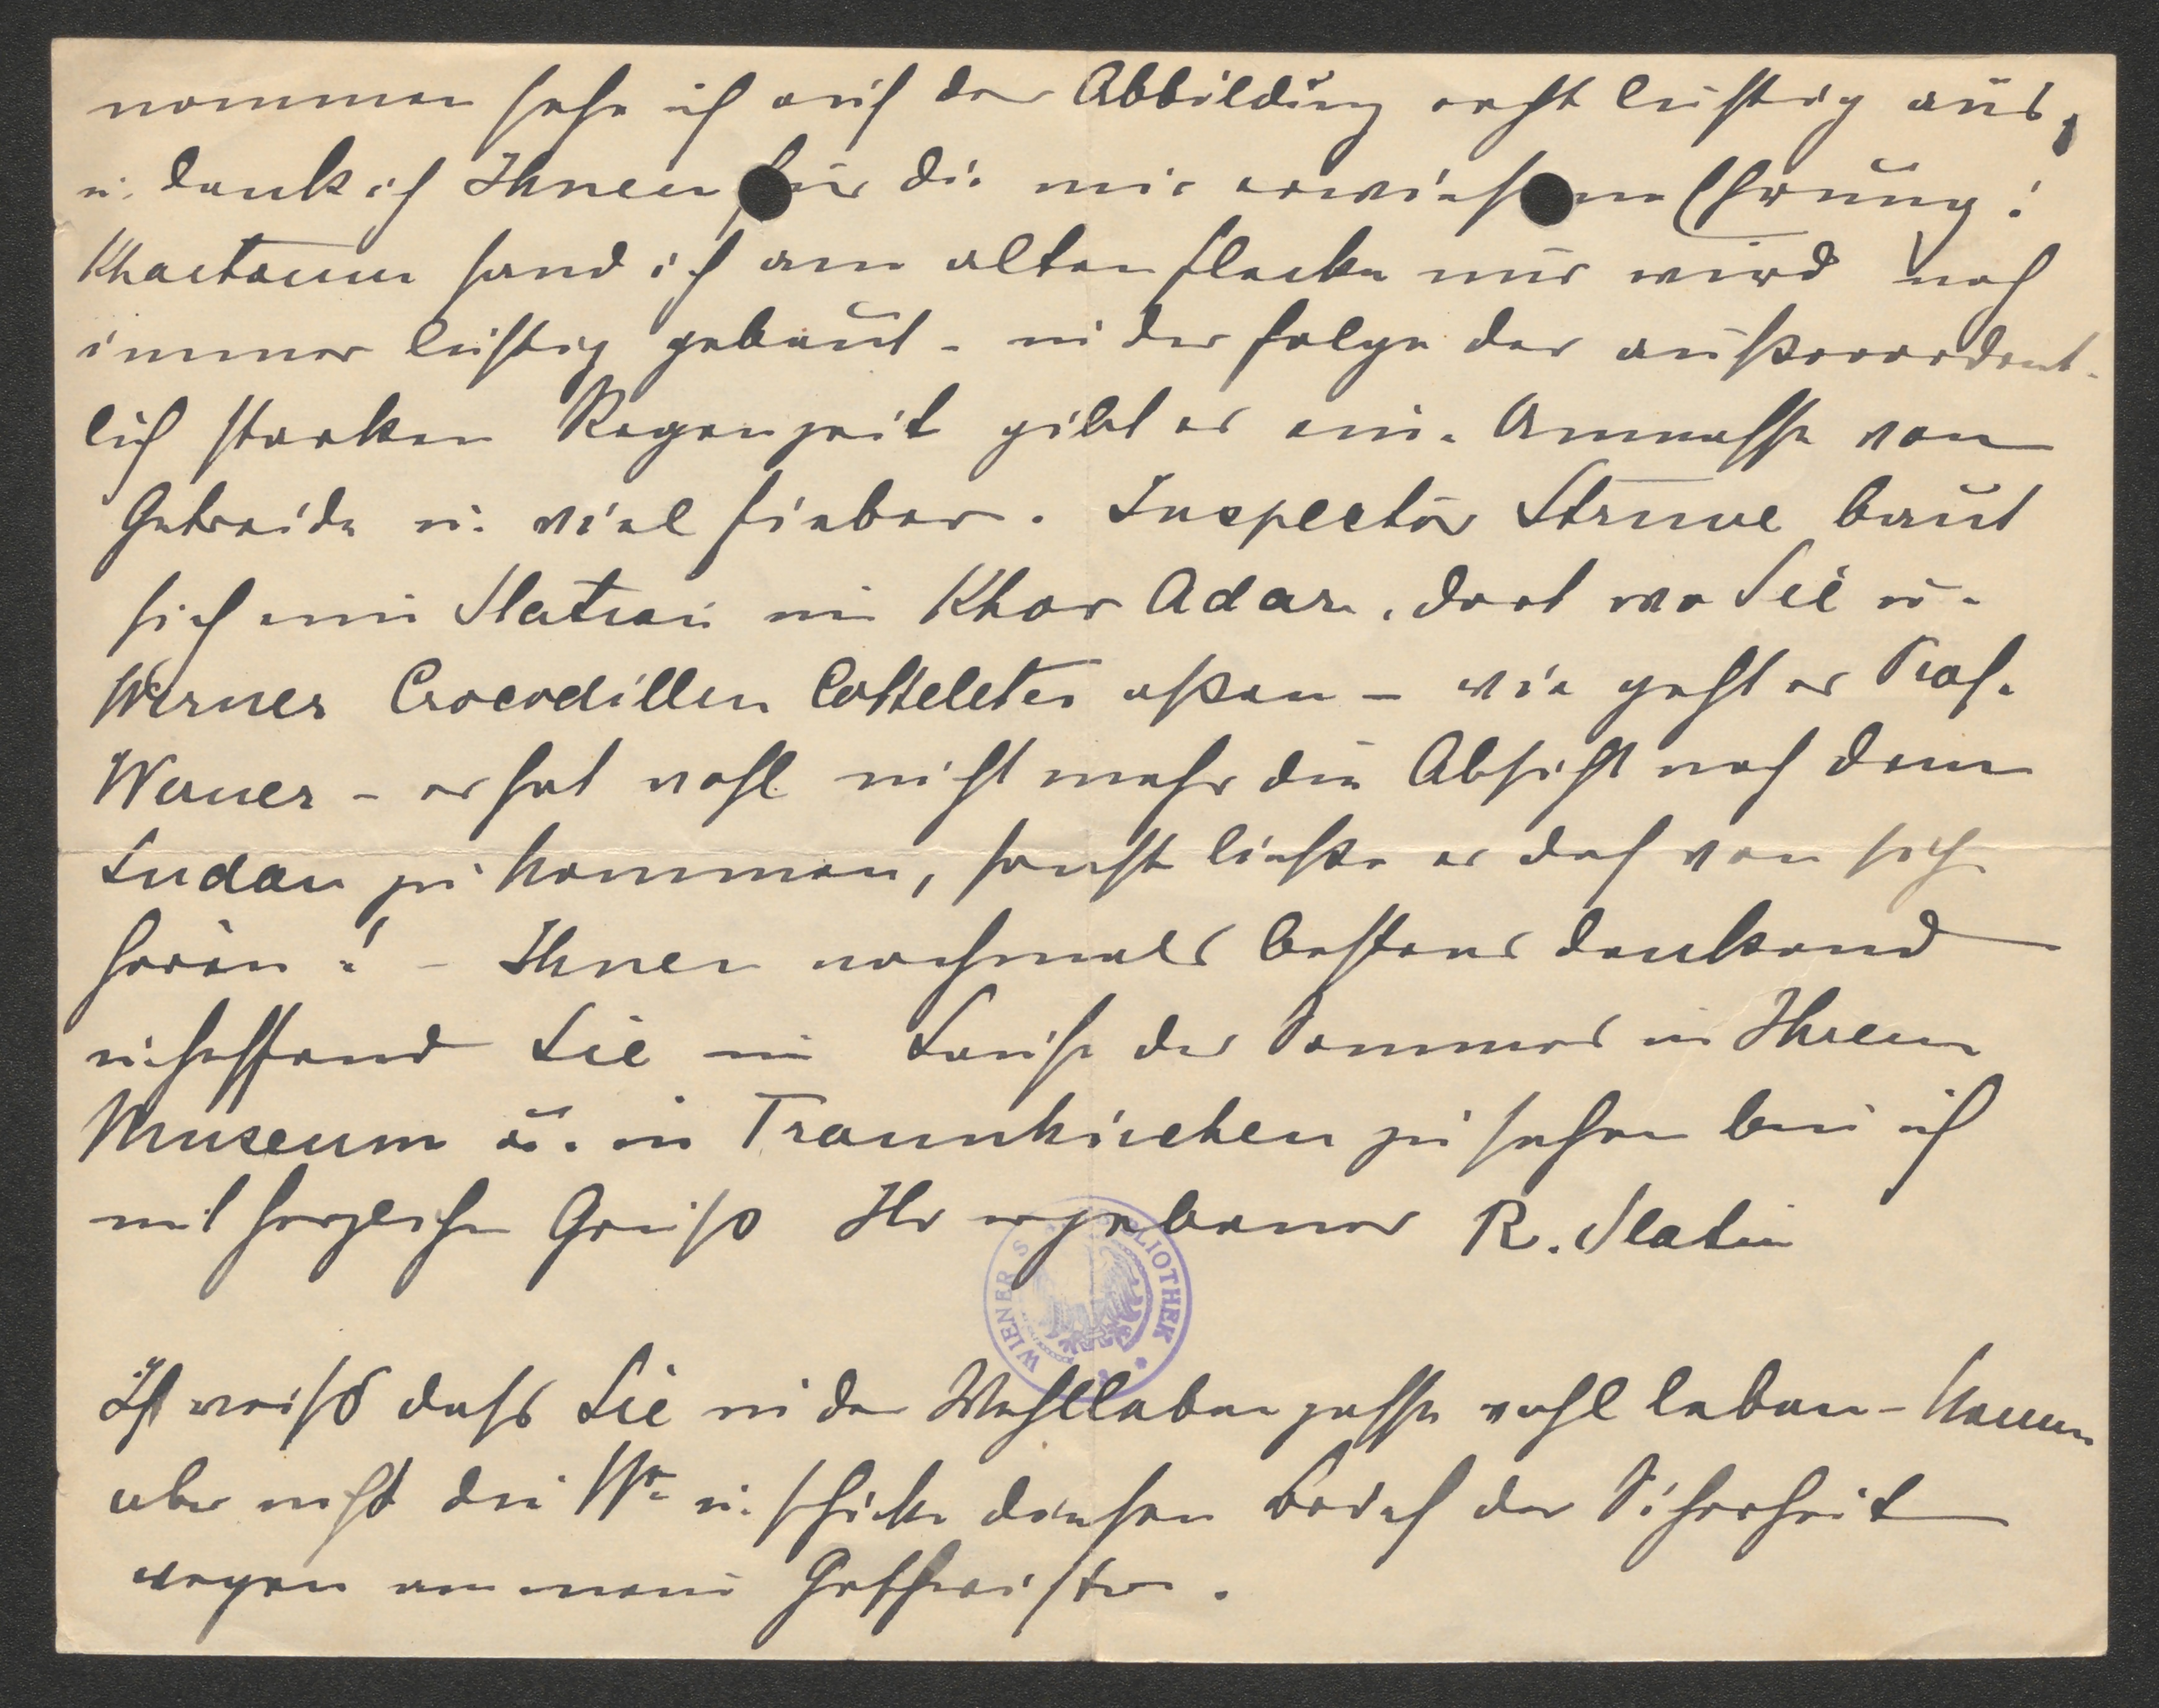 nommen sehe ich auf der Abbildung recht lustig aus,
u. dank ich Ihnen für die mir erwiesene Ehrung!
Khartoum fand ich am alten Flecke nur wird noch
immer lustig gebaut - in der Folge der außerordent-
lich starken Regenzeit gibt es eine Unmasse von
Getreide u. viel Fieber. Inspector Struve baut
sich eine Station in Khor Adar, dort wo Sie u.
Werner Crocodillen Cotteletes aßen - wie geht es Prof.
Werner - er hat wohl nicht mehr die Absicht nach dem
Sudan zu kommen, sonst ließe er doch von sich
hören! - Ihnen nochmals bestens dankend
u. hoffend Sie im Laufe des Sommers in Ihrem
Museum u. in Traunkirchen zu sehen bin ich
mit herzlichen Gruß Ihr ergebener R. Slatin
WIENER S BIBLIOTHEK
Ich weiß daß Sie in der Wohllebengasse wohl leben - kenne
aber nicht die Nr. u. schicke diesen Brief der Sicherheit
wegen an meine Geschwister.